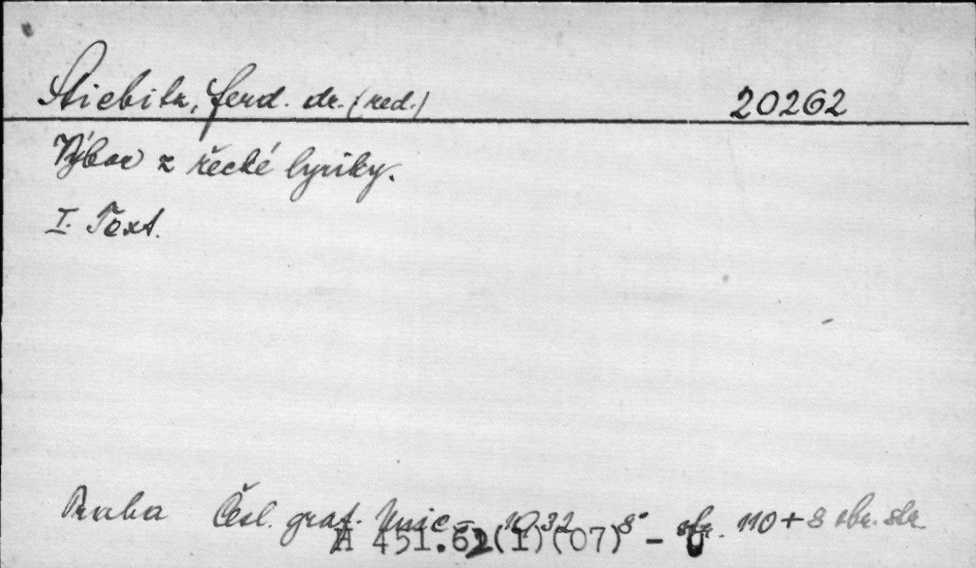 Stiebitz, Ferd. dr. (red.) 20262
Výbor z řecké lyriky.
I. Text.
Praha Čsl. graf. Unie - 1932 8° str. 110 + 8 obr. str.
A 451.62(I)(07) - U